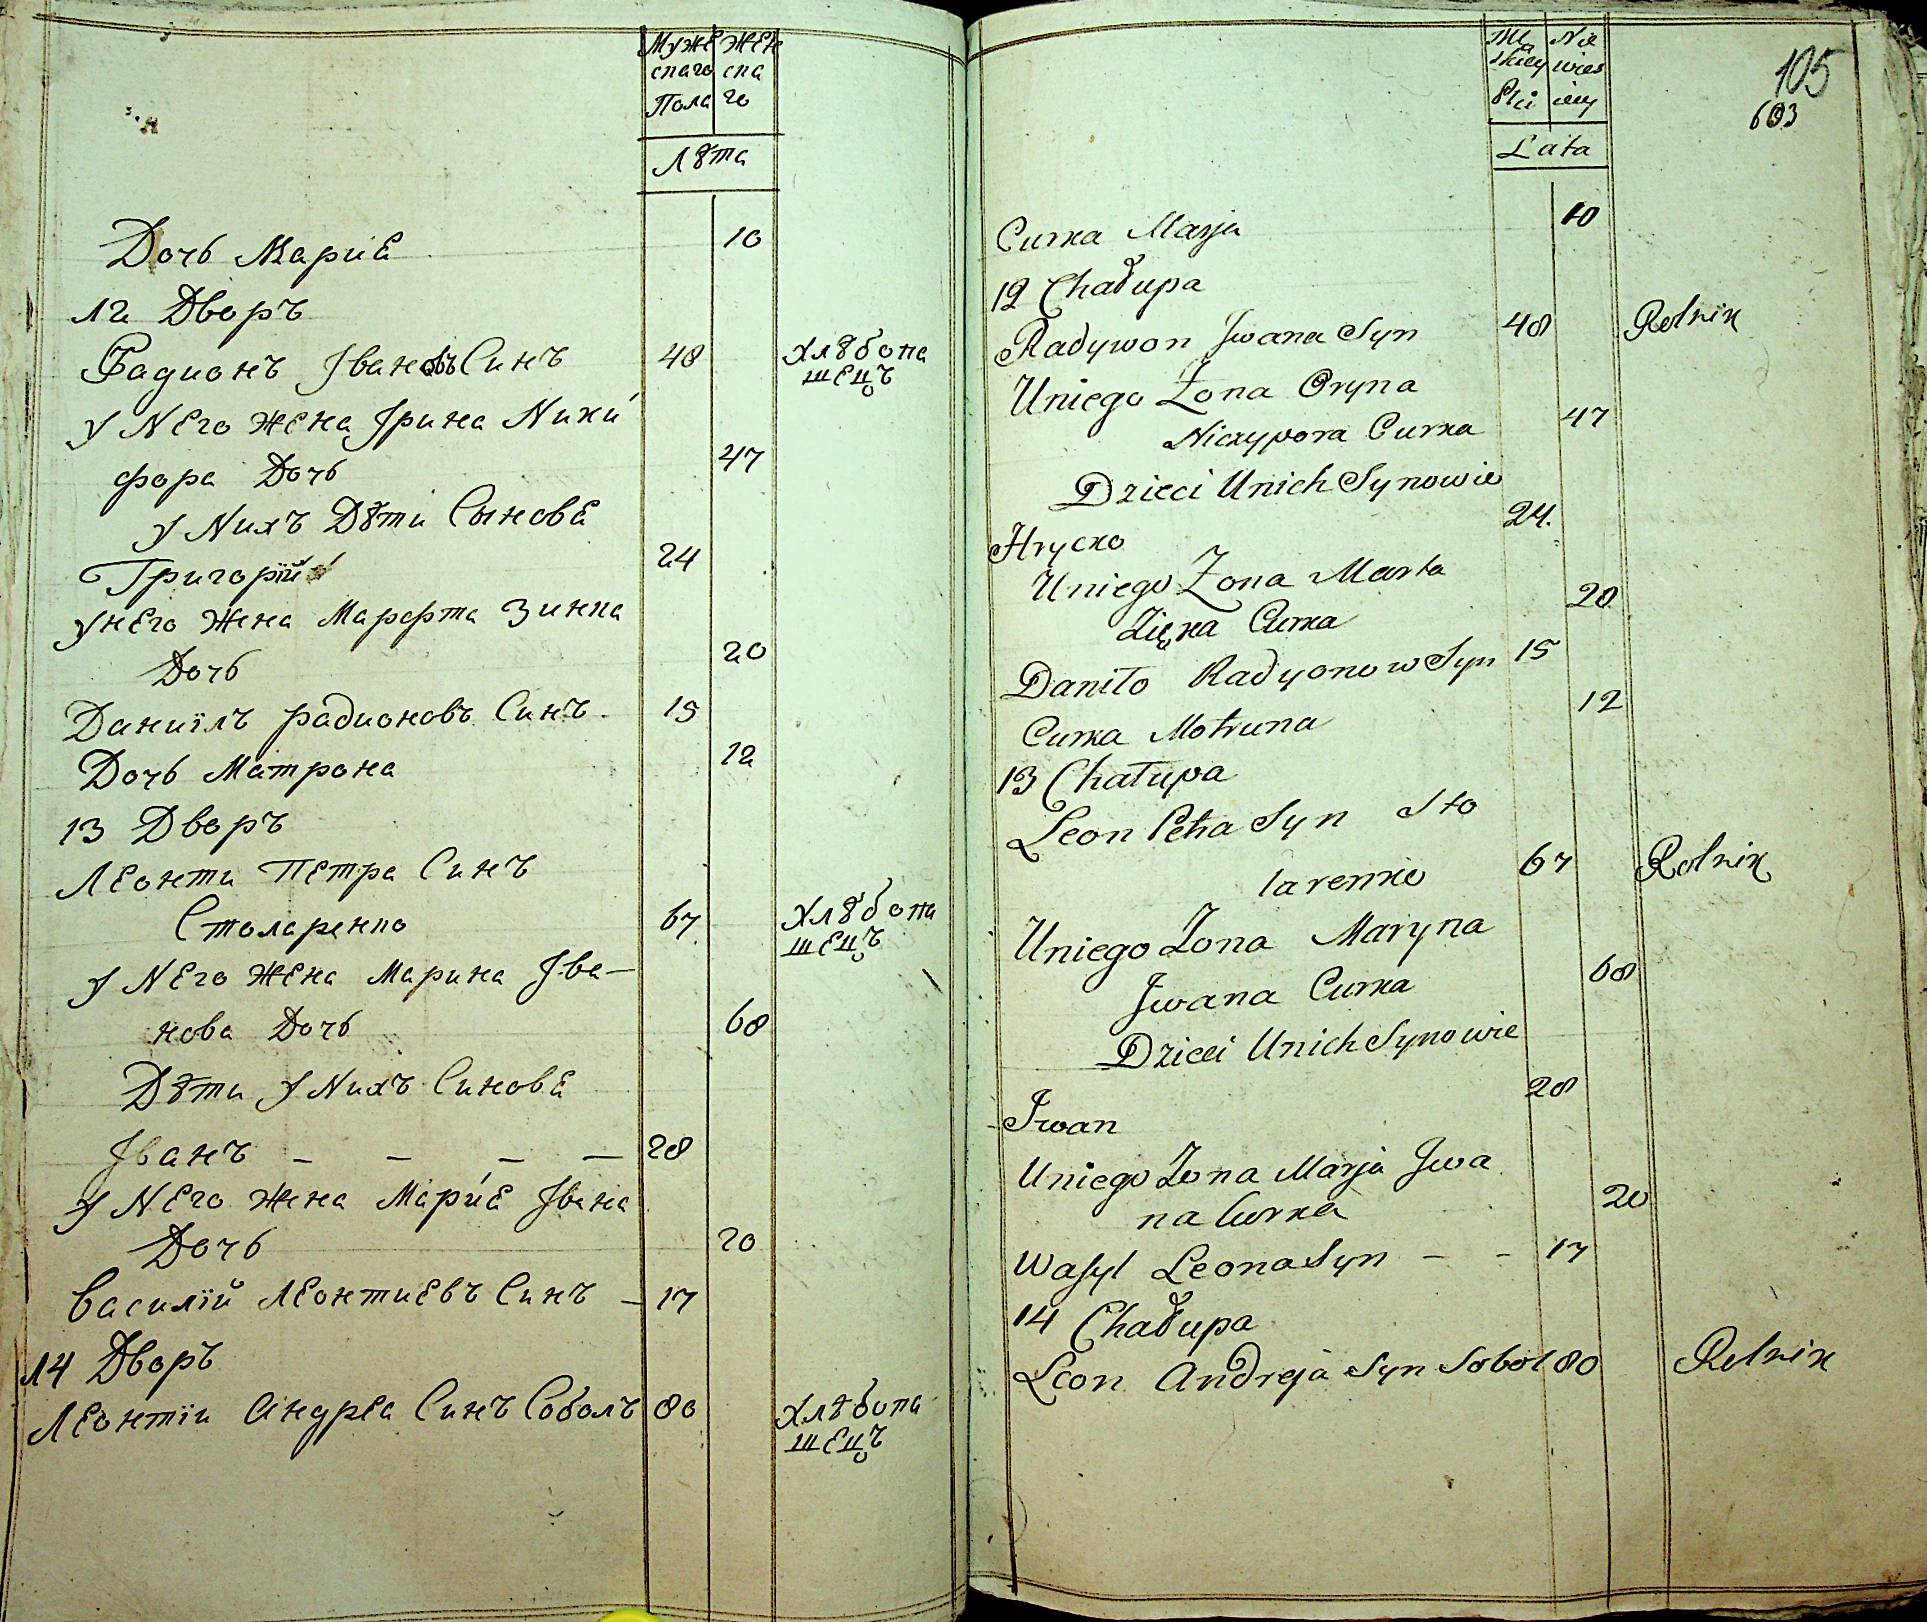 Муже Жен
скаго ска
Пола го
Лѣта
Дочь Марие 10
12 Дворъ
Радионъ Ивановъ Синъ 48 Хлѣбопа
шецъ
у Него жена Ірина Ники
фора Дочь 47
у Нихъ Дѣти Сынове
Григорїй 24
у Него Жена Марфта Зинка
Дочь 20
Данїилъ Радионовъ Синъ 15
Дочь Матрона 12
13 Дворъ
Леонти Петра Синъ
Столаренко 67 Хлѣбопа
шецъ
у Него жена Марина Ива—
нова Дочь 68
Дѣти у Нихъ Синове
Іванъ — — — — 28
у Него жена Марие Івана
Дочь 20
Василїй Леонтиевъ Синъ — 17
14 Дворъ
Леонтїи Андреа Синъ Соболъ 80 Хлѣбопа
шецъ
105
603
Mę Nie
skiey wies
Płci ciey
Lata
Curka Marja 10
12 Chałupa
Radywon Jwana Syn 48 Rolnik
Uniego Żona Oryna
Nickypora Curka 47
Dzieci Unich Synowie
Hrycko 24.
Uniego Żona Marta
Zięka Curka 20
Daniło Radyonow Syn 15
Curka Motruna 12
13 Chałupa
Leon Petra Syn Sto
larenko 67 Rolnik
Uniego Żona Maryna
Jwana Curka 68
Dzieci Unich Synowie
Jwan 28
Uniego Żona Marja Jwa
na Curka 20
Wasyl Leona Syn — — 17
14 Chałupa
Leon Andreja Syn Sobol 80 Rolnik